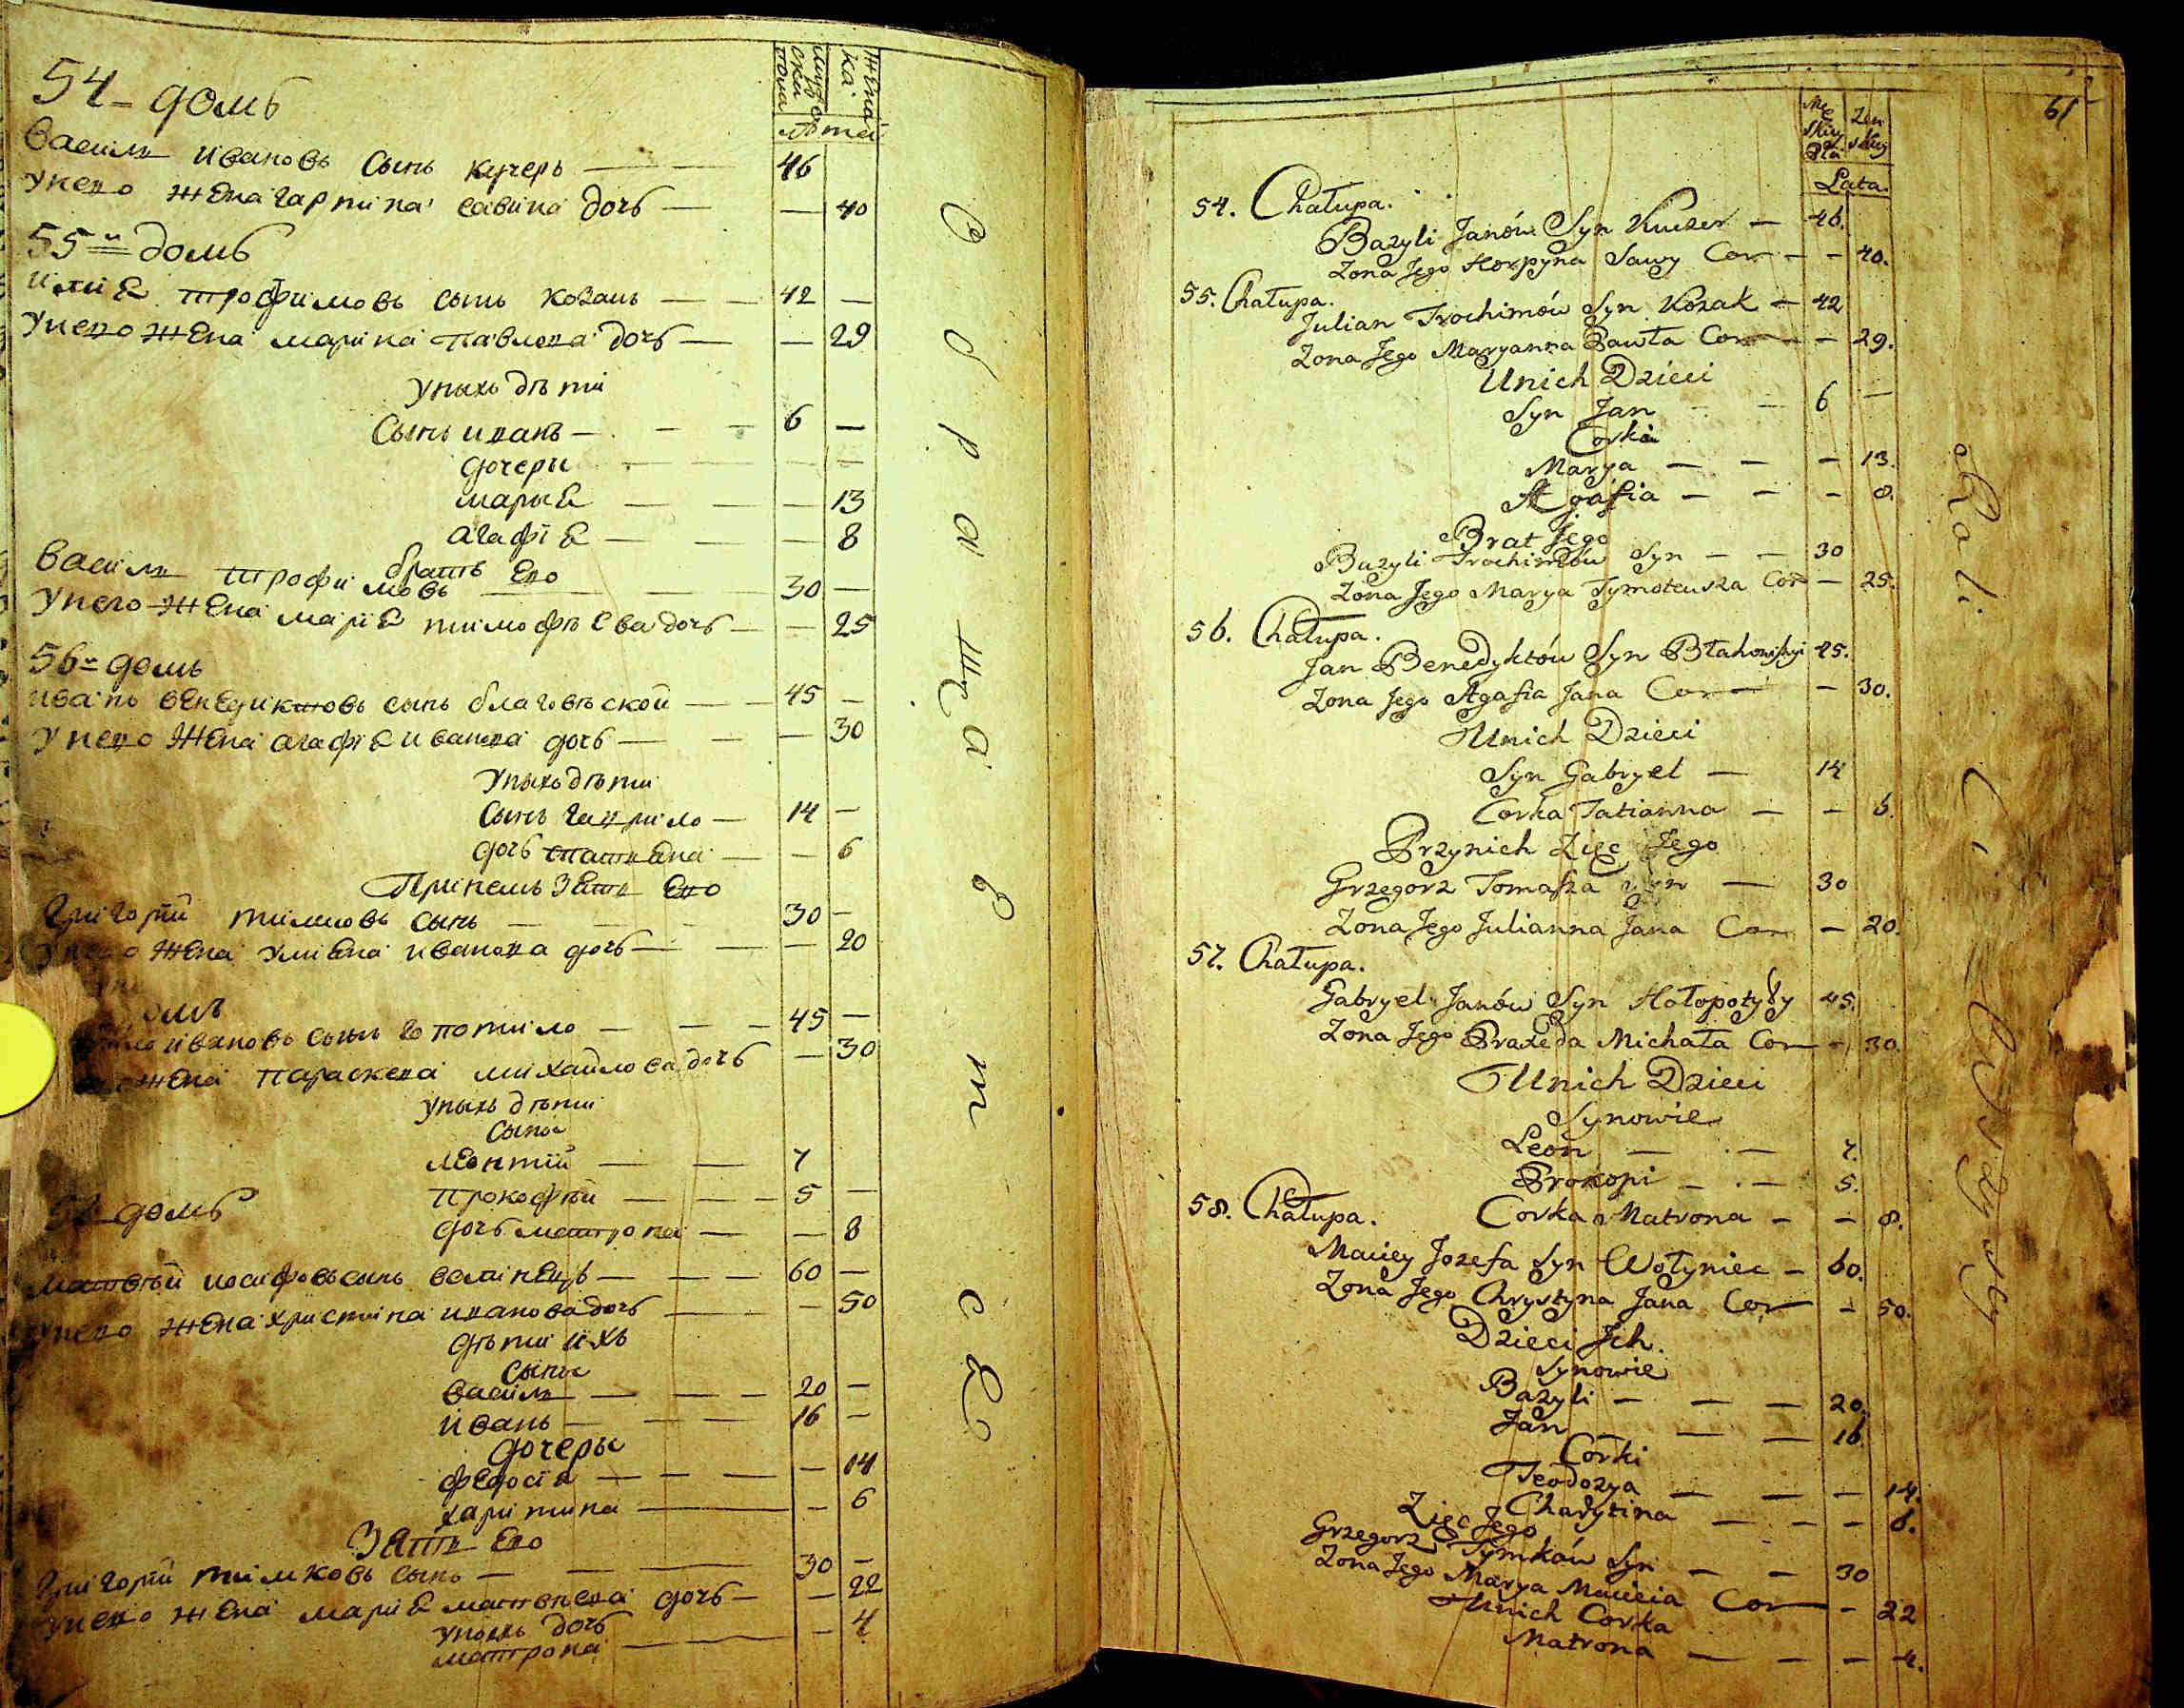 54 – домъ
мужеска пола
женска
лѣтей
василь ивановъ сынъ кучеръ — 46
унего жена гарпина савина дочь — — 40
55й домъ
илиа трофимовъ сынъ козакъ — 42 —
унего жена марина павлова дочь — — 29
уныхъ дѣти
сынъ иванъ — 6 —
дочеры — —
мариа — — 13
агафіа — — 8
братъ его
василь трофимовъ — 30 —
унего жена мариа тимофѣева дочь — — 25
56й домъ
иванъ венедиктовъ сынъ благовѣской — 45 —
унего жена агафіа иванова дочь — — 30
уныхъ дѣти
сынъ гаврило — 14 —
дочь татиана — — 6
принемъ зать его
григорій тимковъ сынъ — 30 —
унего жена улиена иванова дочь — — 20
домъ
ивановъ сынъ — 45 —
жена параскева михайлова дочь — 30
уныхъ дѣти
сыны
леонтій — 7
прокофій — 5 —
дочь матрона — — 8
домъ
матвѣй иосифовъ сынъ волинецъ — 60 —
унего жена христина иванова дочь — — 50
дѣти ихъ
сыны
василь — 20 —
иванъ — 16 —
дочеры
федосіа — — 14
харитина — — 6
зать его
григорій тимковъ сынъ — 30 —
унего жена мариа матвѣева дочь — — 22
уныхъ дочь
матрона — — 4
О б р а щ а е т с е
61
Męskiey Płci
Żenskiey
Lata.
54. Chałupa.
Bazyli Janów Syn Kuczer — 46.
Zona Jego Horpyna Sawy Cor — — 40.
55. Chałupa.
Julian Trochimów Syn Kozak — 42
Zona Jego Maryanna Pawła Cor — — 29.
Unich Dzieci
Syn Jan — 6 —
Corki
Marya — — — 13.
Agafia — — — 8.
Brat Jego
Bazyli Trochimów Syn — — 30
Zona Jego Marya Tymoteusza Cor — 25.
56. Chałupa.
Jan Benedyktów Syn Błahowiskyi 45.
Zona Jego Agafia Jana Cor — — 30.
Unich Dzieci
Syn Gabryel — 14
Corka Tatianna — — 6.
Przynich Zięc Jego
Grzegorz Tomasza Syn — 30
Zona Jego Julianna Jana Cor — 20.
57. Chałupa.
Gabryel Janów Syn Hołopotyły 45.
Zona Jego Praxeda Michała Cor — 30.
Unich Dzieci
Synowie
Leon — — 7.
Prokopi — — 5.
58. Chałupa. Corka Matrona — — 8.
Maciey Jozefa Syn Wołyniec — 60.
Zona Jego Chrystyna Jana Cor — 50.
Dzieci Jch.
Synowie
Bazyli — — — 20.
Jan — — 16.
Corki
Teodozya — — — 14.
Charytina — — — 6.
Zięc Jego
Grzegorz Tymków Syn — — 30
Zona Jego Marya Macieia Cor — — 22
Unich Corka
Matrona — — — 4.